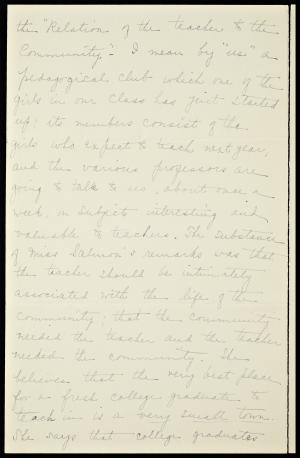 the "Relation of the teacher to the
Community." I mean by "us" a
pedagogical club which one of the
girls in our class has just started
up; its members consist of the
girls who expect to teach next year,
and the various professors are
going to talk to us, about once a
week, on subject interesting and
valuable to teachers. The substance
of Miss Salmon's remarks was that
the teacher should be intimately
associated with the life of the
community; that the community
needed the teacher and the teacher
needed the community. She
believes that the very best place
for a fresh college graduate to
teach in is a very small town.
She says that college graduates